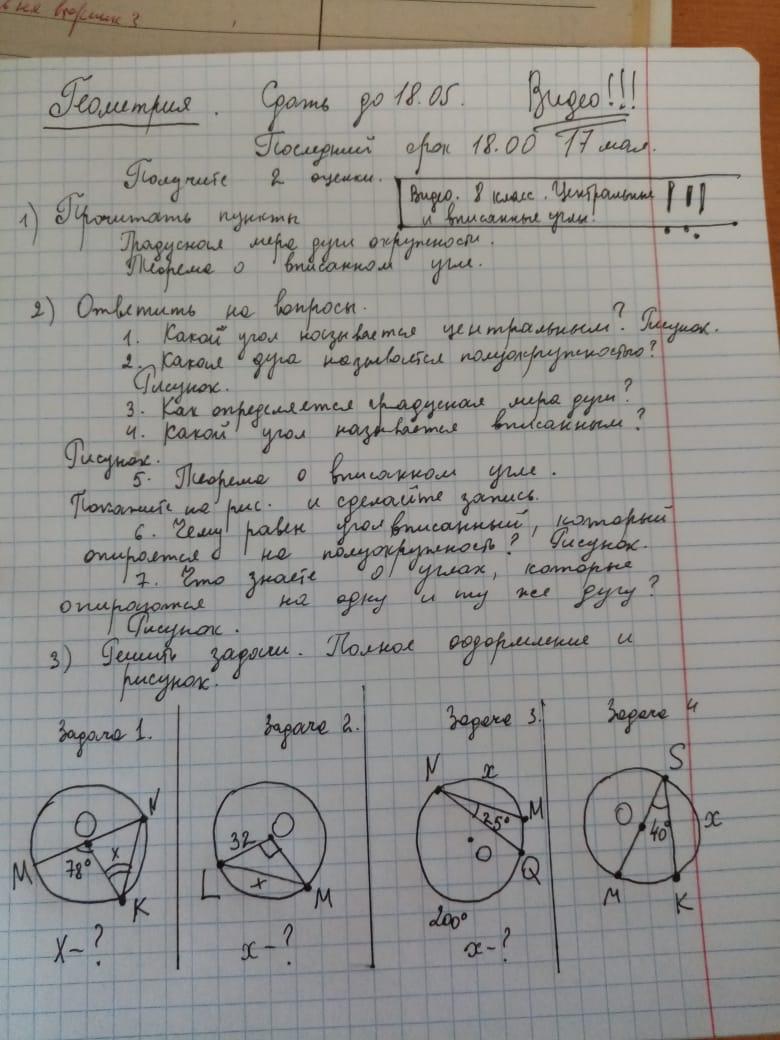 вторник?
Геометрия. Сдать до 18.05. Видео!!!
Последний срок 18.00 17 мая.
Получите 2 оценки.
Видео. 8 класс. Центральные
и вписанные углы. !!!
1) Прочитать пункты
Градусная мера дуги окружности.
Теорема о вписанном угле.
2) Ответить на вопросы.
1. Какой угол называется центральным? Рисунок.
2. Какая дуга называется полуокружностью?
Рисунок.
3. Как определяется градусная мера дуги?
4. Какой угол называется вписанным?
Рисунок.
5. Теорема о вписанном угле.
Покажите на рис. и сделайте запись.
6. Чему равен угол вписанный, который
опирается на полуокружность? Рисунок.
7. Что знаете о углах, которые
опираются на одну и ту же дугу?
Рисунок.
3) Решить задачи. Полное оформление и
рисунок.
Задача 1.
N
O
M
78°
x
K
X-?
Задача 2.
32
O
L
x
M
x-?
Задача 3.
N
x
M
25°
O
Q
200°
x-?
Задача 4
S
O
40°
x
M
K